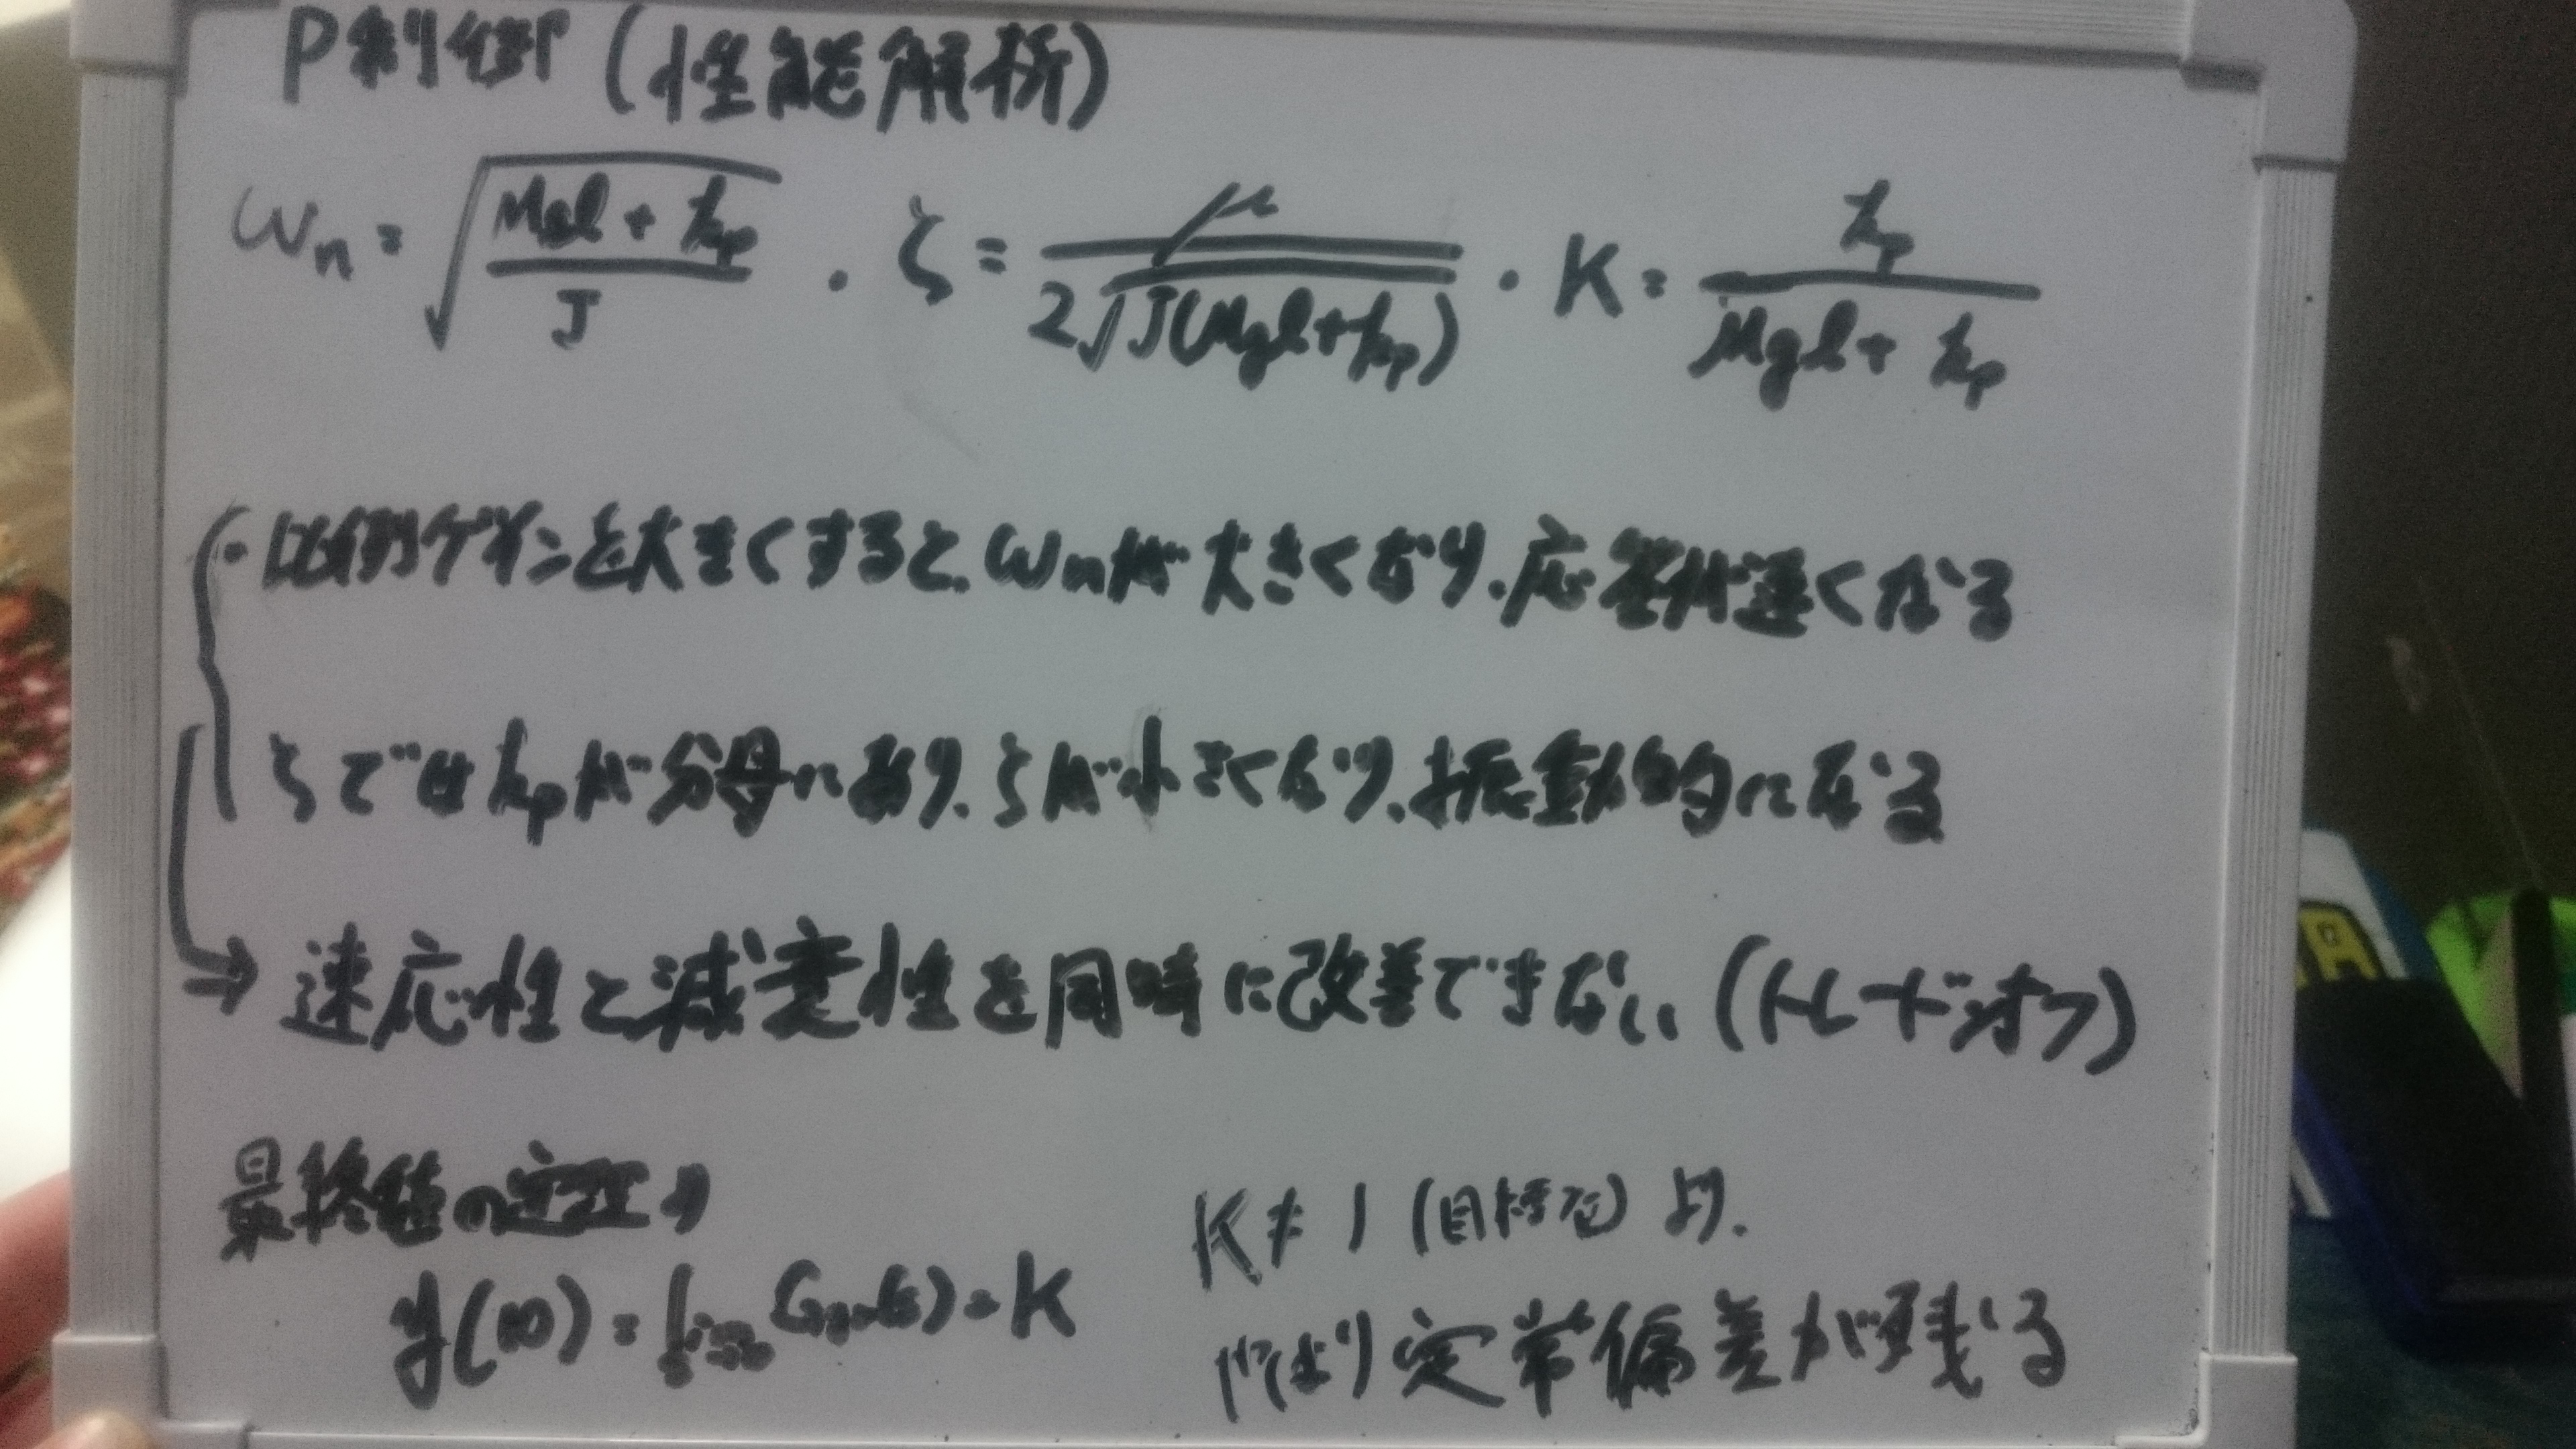 P制御(性能解析)
ωn = √((Mgl + kp)/J) , ζ = μ/(2√(J(Mgl+kp))) , K = kp/(Mgl + kp)
・比例ゲインを大きくすると、ωnが大きくなり、応答が速くなる
ζではkpが分母にあり、ζが小さくなり、振動的になる
→ 速応性と減衰性を同時に改善できない (トレードオフ)
最終値の定理より
y(∞) = lim s→0 G(s) = K
K ≠ 1 (目標) より、
定常偏差が残る